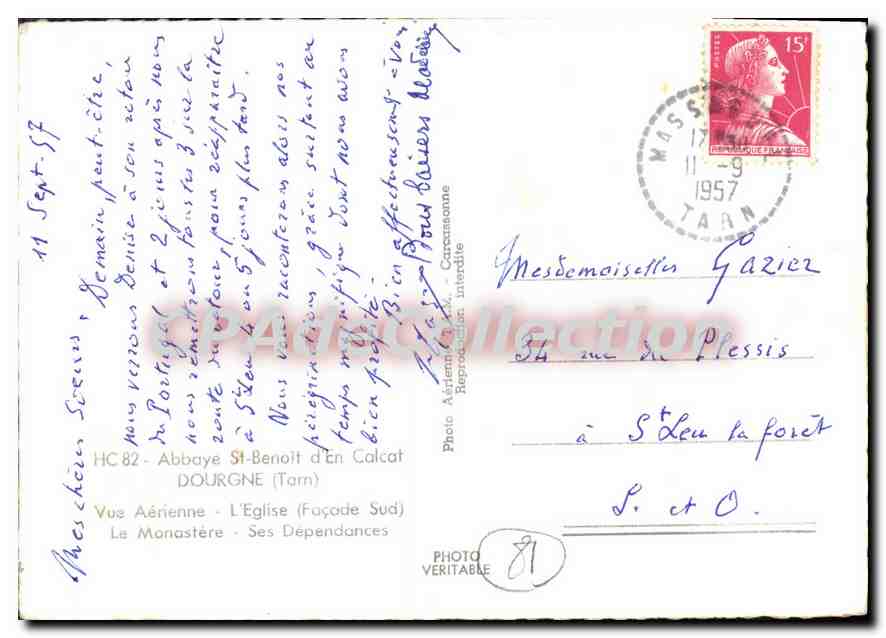 11 Sept. 57
Mes chères Soeurs,
Demain, peut-être,
nous verrons Denise à son retour
du Portugal et 2 jours après nous
nous remettrons tous les 3 sur la
route du retour, pour réapparaître
à St Leu 4 ou 5 jours plus tard.
Nous vous raconterons alors nos
pérégrinations, grâce surtout au
temps magnifique dont nous avons
bien profité.
Bien affectueusement à vous
Bons baisers
HC 82 - Abbaye St-Benoît d'En Calcat
DOURGNE (Tarn)
Vue Aérienne - L'Eglise (Façade Sud)
Le Monastère - Ses Dépendances
Photo Aérienne - Carcassonne
Reproduction interdite
PHOTO
VERITABLE
81
POSTES
15F
REPUBLIQUE FRANÇAISE
11 -9
1957
TARN
Mesdemoiselles Gazier
34 rue du Plessis
à St Leu la forêt
S. et O.
CPAdsCollection